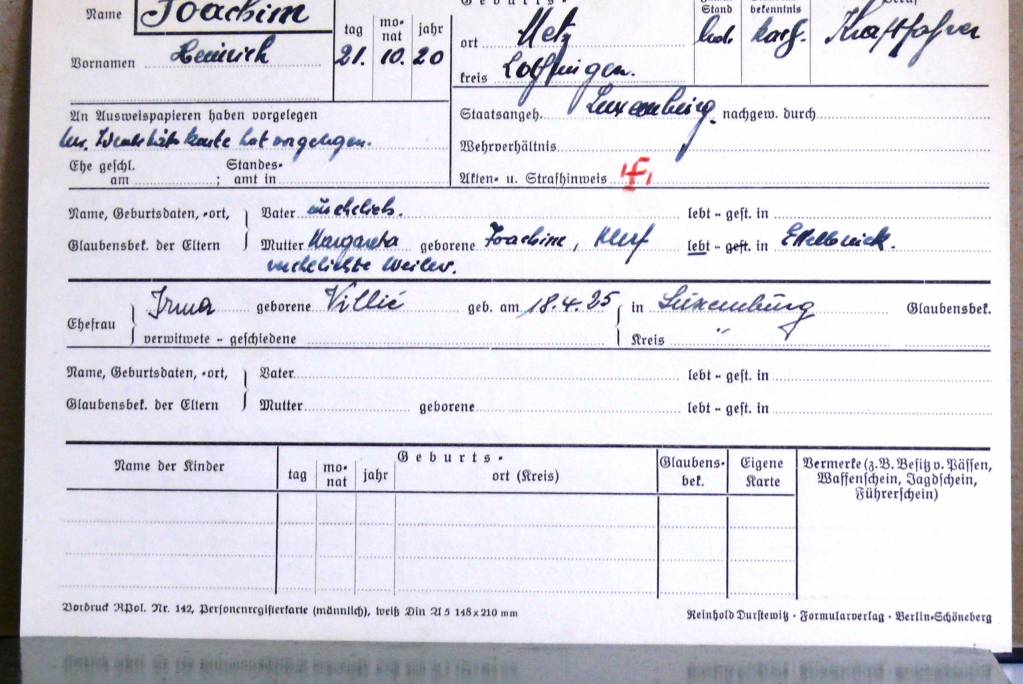 Name Joachim
Geburts-
tag monat jahr
Stand bekenntnis
ort Metz led. kath. Kraftfahrer
Vornamen Heinrich 21. 10. 20
kreis Lothringen.
An Ausweispapieren haben vorgelegen
Staatsangeh. Luxemburg. nachgew. durch
lux. Identitätskarte hat vorgelegen.
Wehrverhältnis
Ehe geschl. Standes-
am ; amt in
Akten- u. Strafhinweis
Name, Geburtsdaten, -ort, Vater unehelich. lebt - gest. in
Glaubensbek. der Eltern Mutter Margareta geborene Joachim, lebt - gest. in Ettelbrück.
verehelichte Weiler.
Irma geborene Villié geb. am 18.4.25 in Luxemburg Glaubensbek.
Ehefrau
verwitwete - geschiedene Kreis "
Name, Geburtsdaten, -ort, Vater lebt - gest. in
Glaubensbek. der Eltern Mutter geborene lebt - gest. in
Name der Kinder
Geburts-
tag mo-nat jahr ort (Kreis)
Glaubens-
bek.
Eigene
Karte
Vermerke (z. B. Besitz v. Pässen,
Waffenschein, Jagdschein,
Führerschein)
Vordruck RPol. Nr. 142, Personenregisterkarte (männlich), weiß Din A 5 148 x 210 mm
Reinhold Durstewitz · Formularverlag · Berlin-Schöneberg